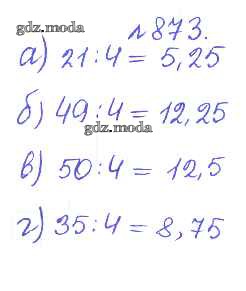 gdz.moda
№873.
а) 21:4 = 5,25
б) 49:4 = 12,25
gdz.moda
в) 50:4 = 12,5
г) 35:4 = 8,75